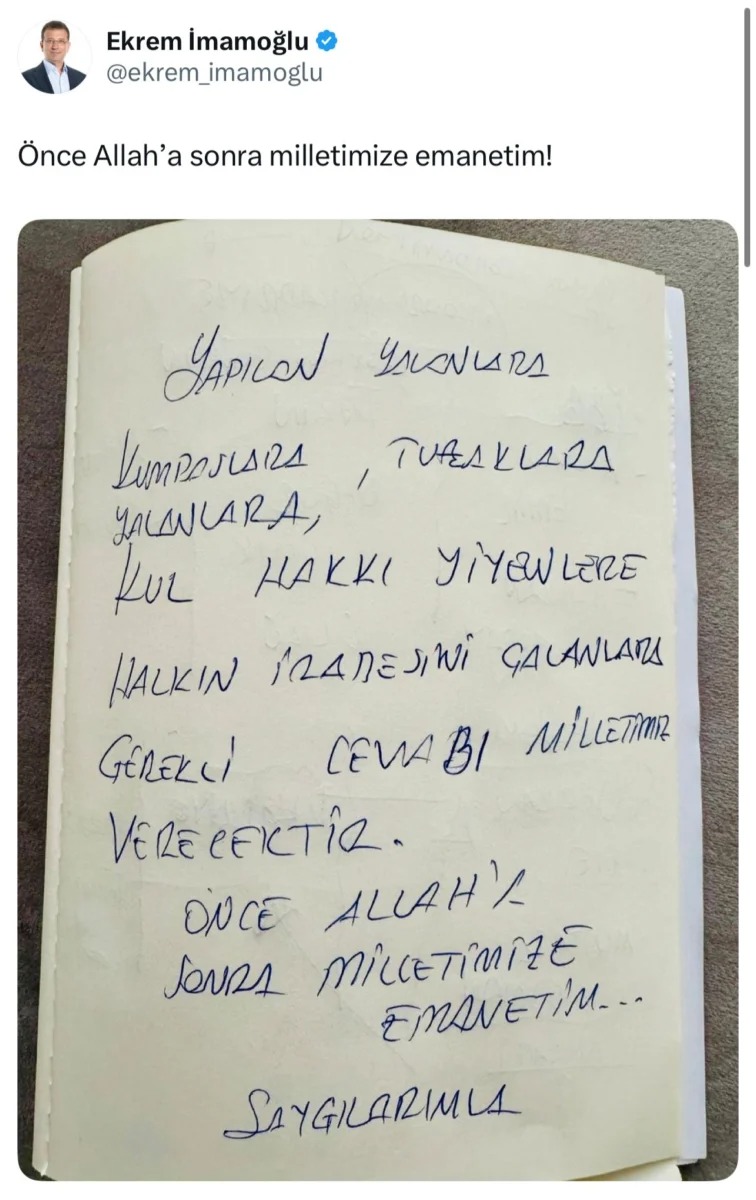 Ekrem İmamoğlu
@ekrem_imamoglu
Önce Allah’a sonra milletimize emanetim!
YAPILAN YALANLARA
KUMPASLARA, TUZAKLARA
YALANLARA,
KUL HAKKI YİYENLERE
HALKIN İRADESİNİ ÇALANLARA
GEREKLİ CEVABI MİLLETİMİZ
VERECEKTİR.
ÖNCE ALLAH'A
SONRA MİLLETİMİZE
EMANETİM...
SAYGILARIMLA